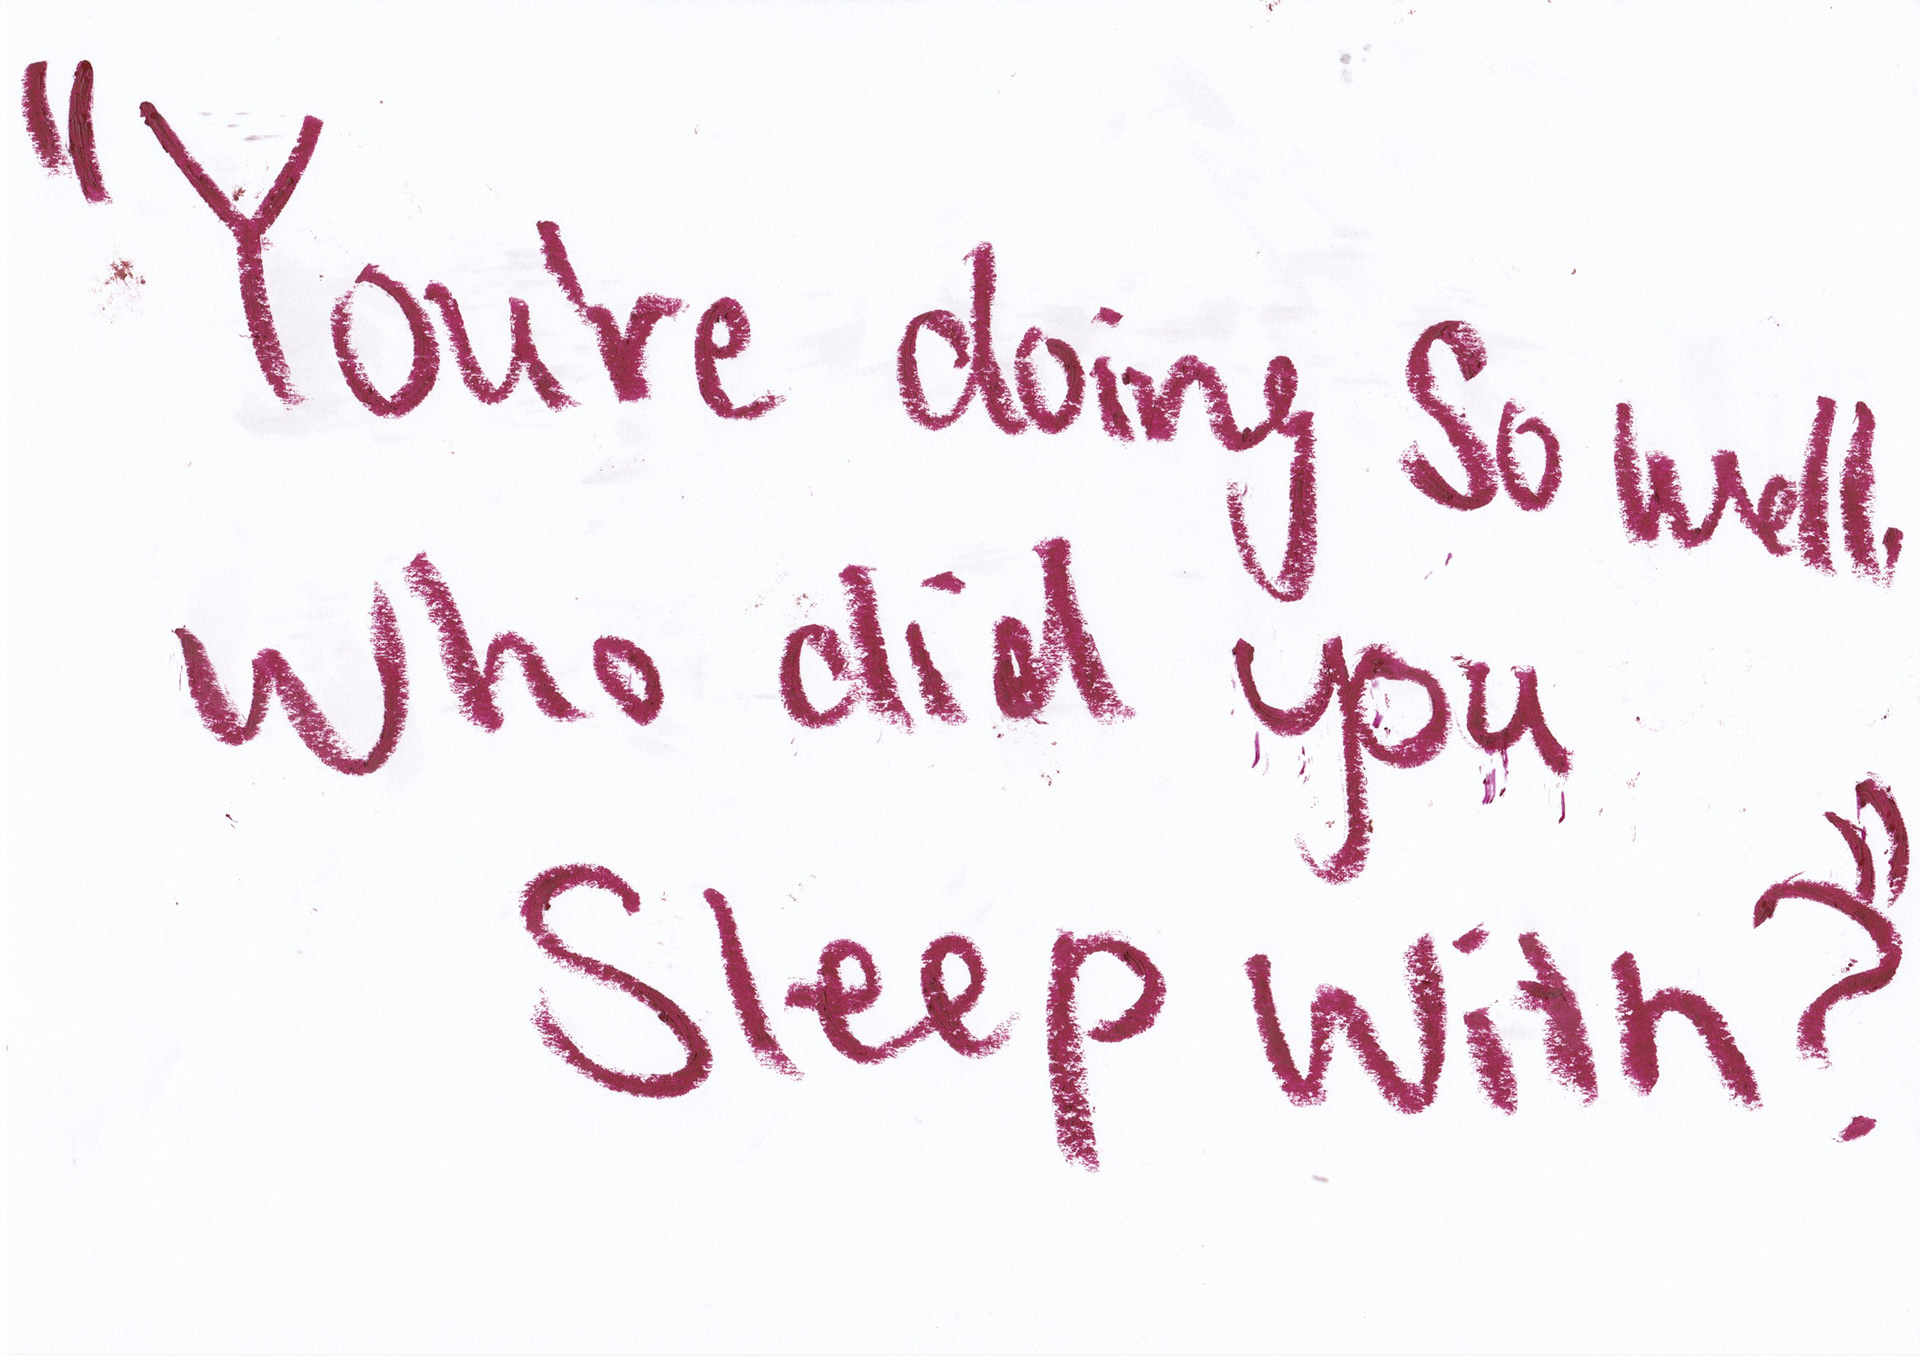 "You're doing so well,
who did you
sleep with?"